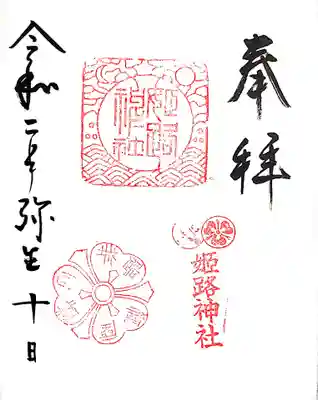 奉拝
姫路神社
姫路神社
令和二年弥生十日